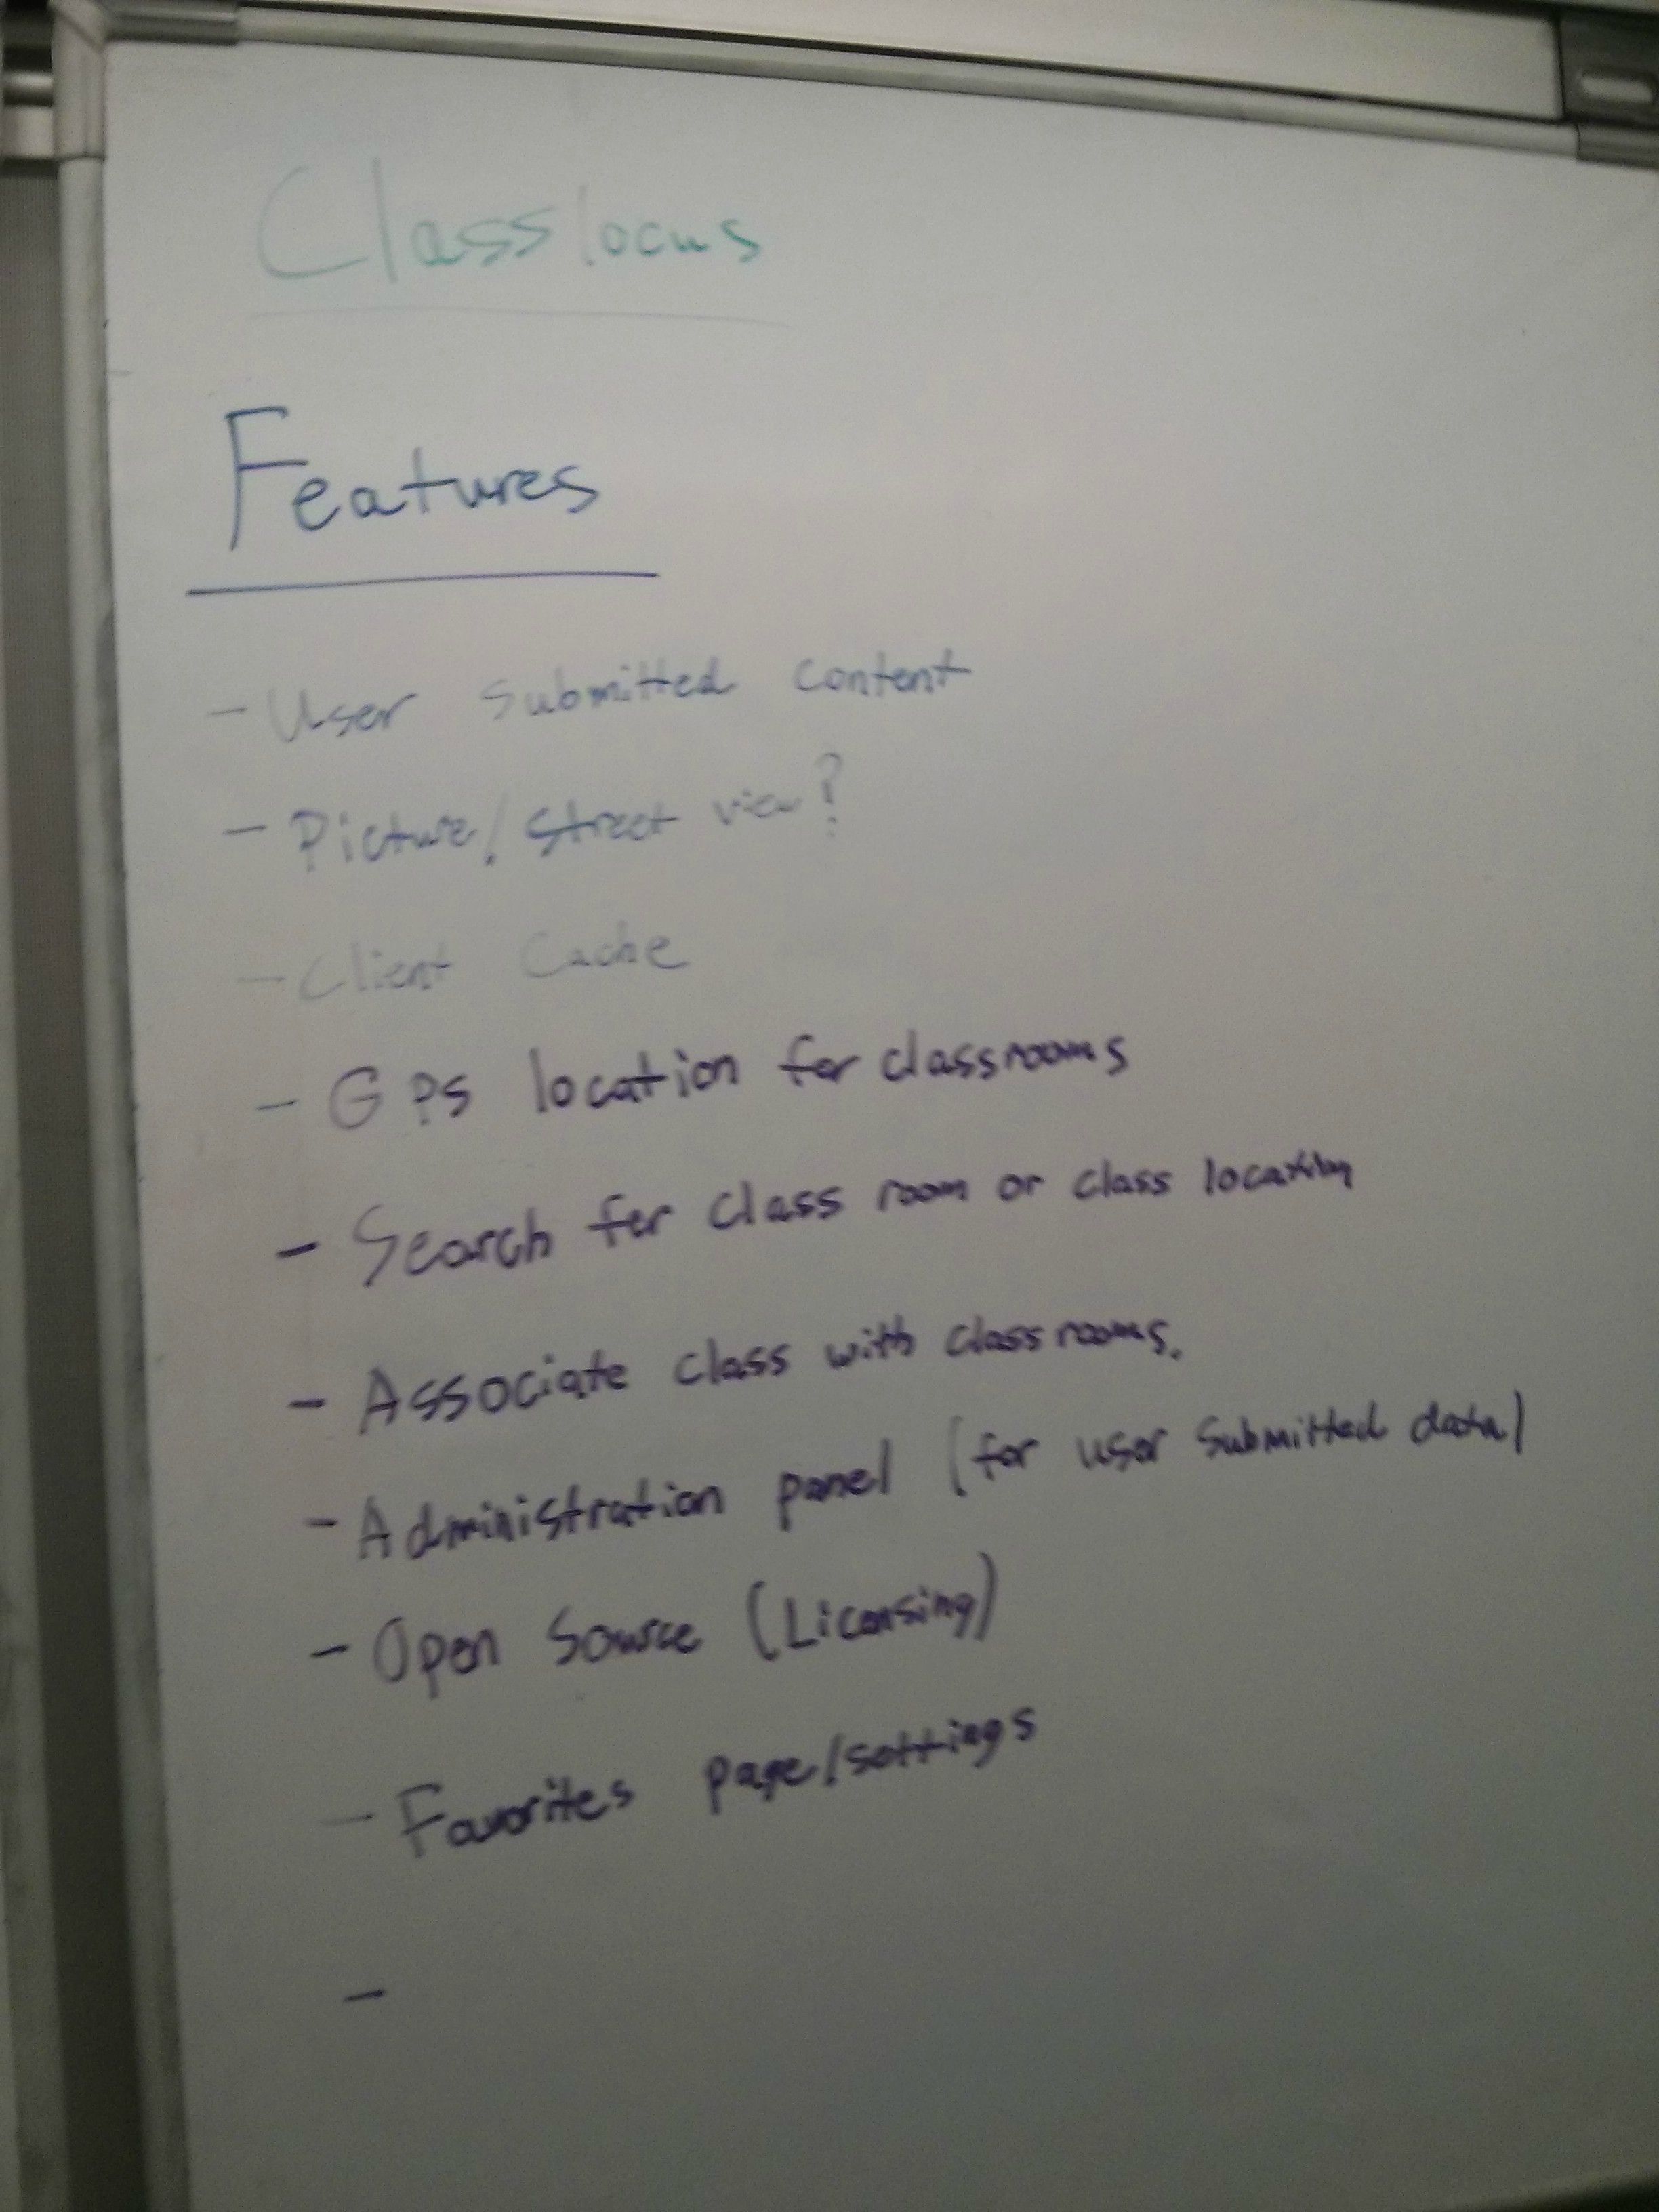 Classlocus
Features
- User submitted content
- Picture/street view?
- Client Cache
- GPS location for classrooms
- Search for class room or class location
- Associate class with classrooms.
- Administration panel (for user submitted data)
- Open Source (Licensing)
- Favorites page/settings
-